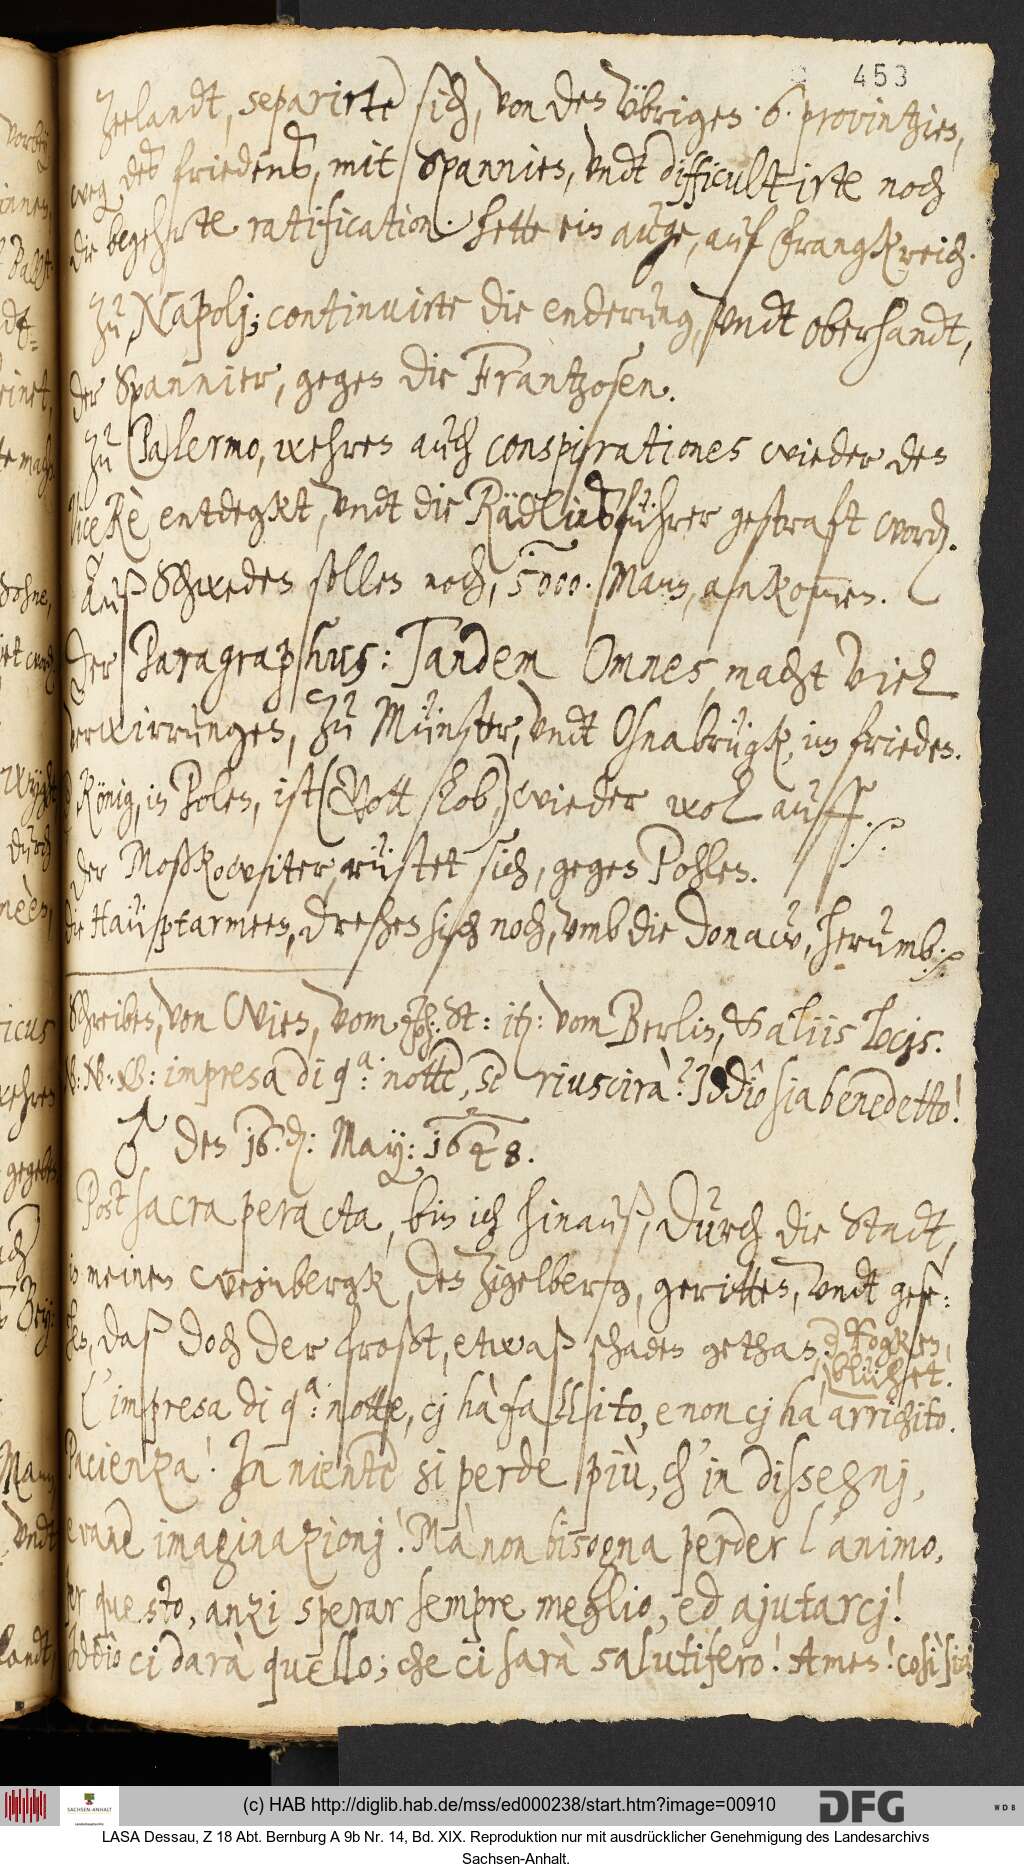 453
Zeelandt, separirte sich, von den übrigen ·6· provintzien,
weg des friedens, mit Spannien, undt difficultirte noch
die begehrte ratification. hette ein auge, auf Frangkreich.
Zu Napolj; continuirte die enderung, undt oberhandt,
der Spannier, gegen die Frantzosen.
Zu Palermo, wehren auch conspirationes wieder den
Vice Rè entdegkt, undt die Rädlinsführer gestraft word.
Auß Schweden sollen noch, 5000. Mann, ankom̄en.
Der Paragraphus: Tandem Omnes, macht viel
verwirrungen, zu Münster, undt Oßnabrügk, im frieden.
d König, in Polen, ist (Gott lob,) wieder wol auff. ./.
Der Moßkowiter, rüstet sich, gegen Pohlen.
die Hauptarmeen, drehen sich noch, umb die Donaw, herumb. ./.
Schreiben, von Wien, vom St: it: vom Berlin, & aliis locis.
N: N: B: impresa di q.ª notte, se riuscirà? Iddîo sia benedetto!
♂ den 16. d: May: 1648.
Post sacra peracta, bin ich hinauß, durch die Stadt,
in meinen Weinbergk, den Zigelberg, geritten, undt gese-
hen, daß doch der frost, etwaß schaden gethan. d Rogken,
blühet.
L'impresa di q.ª notte, cj hà fallito, e non cj hà arrichito.
Pacienza! In niente si perde più, ch'in dissegnj,
e vane imaginazionj! Mà non bisogna perder l'animo,
per questo, anzi sperar sempre meglio, ed ajutarcj!
Iddio ci darà quello; che ci sarà salutifero! Amen! così sia
(c) HAB http://diglib.hab.de/mss/ed000238/start.htm?image=00910
SACHSEN-ANHALT
DFG
WDB
LASA Dessau, Z 18 Abt. Bernburg A 9b Nr. 14, Bd. XIX. Reproduktion nur mit ausdrücklicher Genehmigung des Landesarchivs
Sachsen-Anhalt.